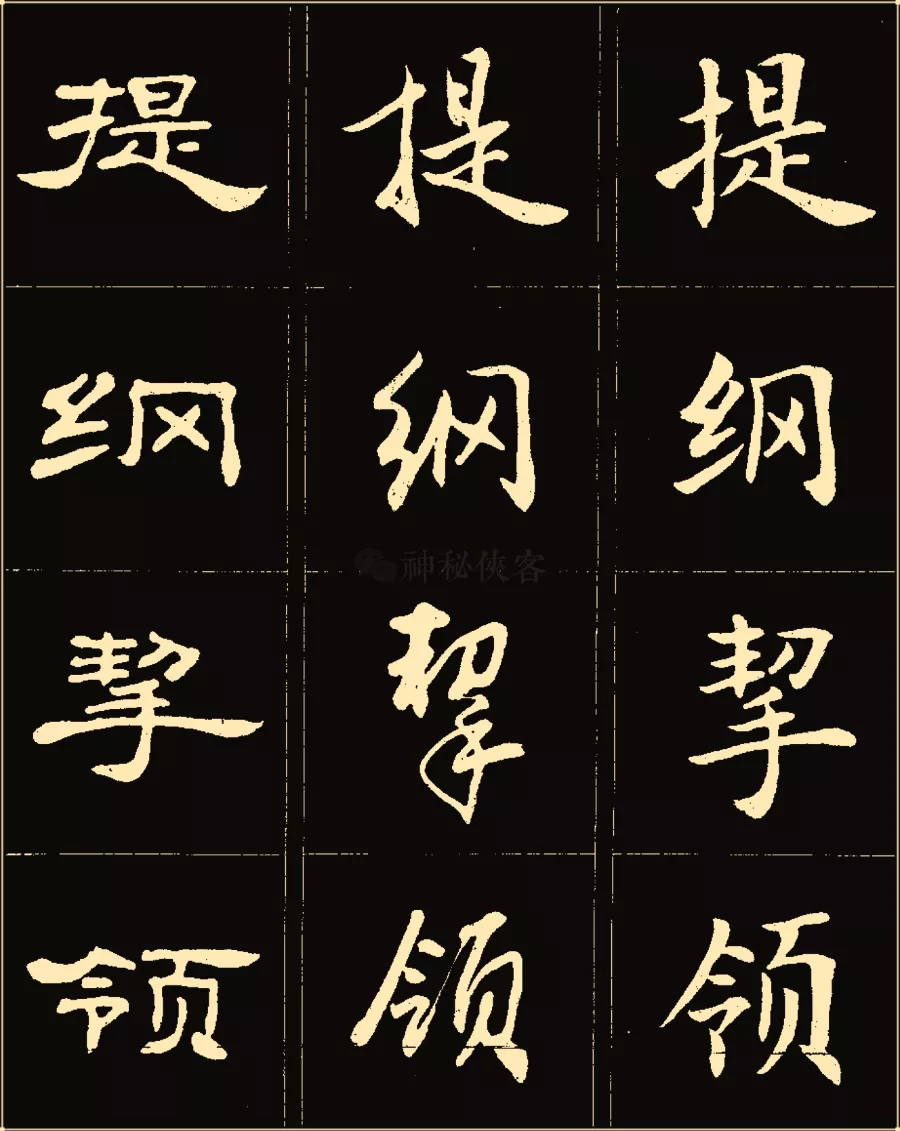 提纲挈领
提纲挈领
提纲挈领
神秘俠客